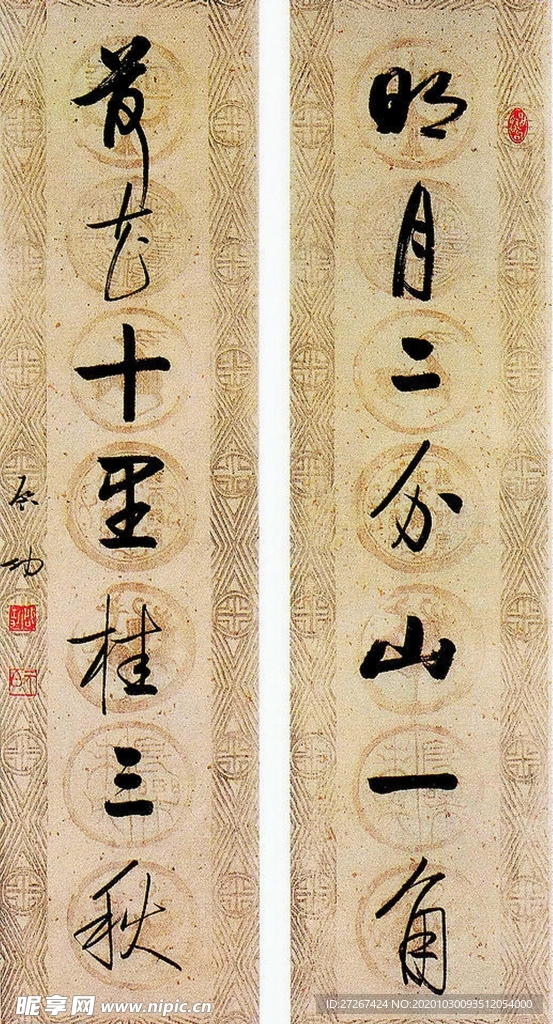 明月二分山一角
荷花十里桂三秋
启功
昵享网 www.nipic.cn
ID:27267424 NO:20201030093512054000